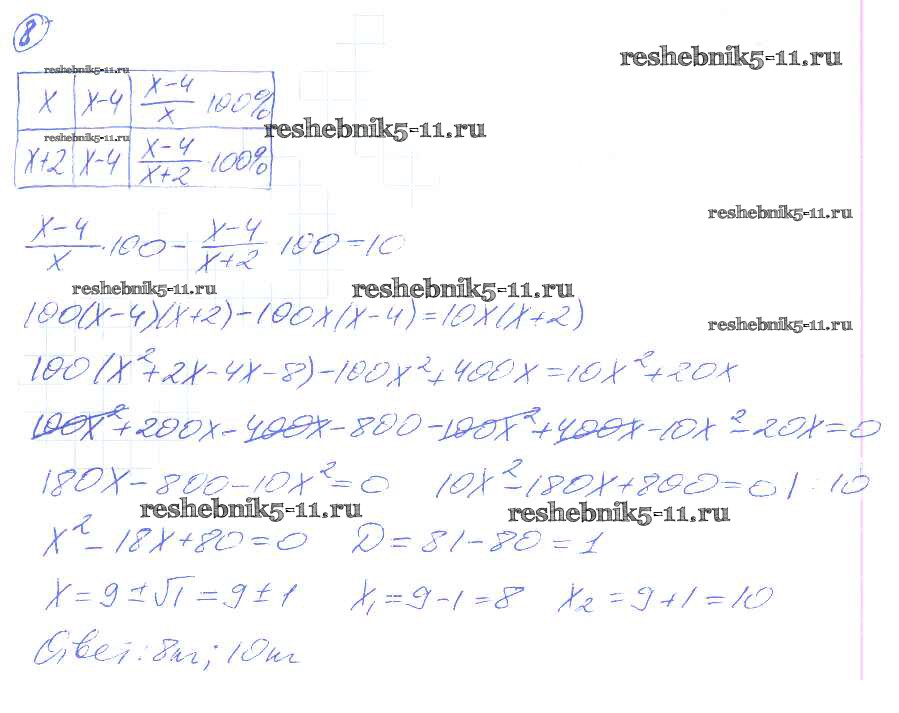 8
reshebnik5-11.ru
reshebnik5-11.ru
x | x-4 | (x-4)/x 100%
reshebnik5-11.ru
reshebnik5-11.ru
x+2 | x-4 | (x-4)/(x+2) 100%
reshebnik5-11.ru
(x-4)/x · 100 - (x-4)/(x+2) 100 = 10
reshebnik5-11.ru
reshebnik5-11.ru
100(x-4)(x+2)-100x(x-4)=10x(x+2)
reshebnik5-11.ru
100(x²+2x-4x-8)-100x²+400x=10x²+20x
100x²+200x-400x-800-100x²+400x-10x²-20x=0
180x-800-10x²=0 10x²-180x+800=0 | : 10
reshebnik5-11.ru
reshebnik5-11.ru
x²-18x+80=0 D=81-80=1
x=9±√1=9±1 x₁=9-1=8 x₂=9+1=10
Ответ: 8т; 10т